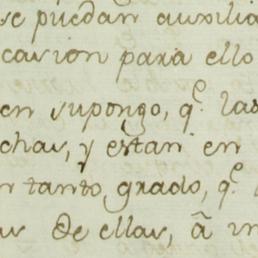 se puedan auxilia
casion para ello
en supongo, q.^e las
chas, y estan en
n tanto grado, q.^e
as de ellas, ã in